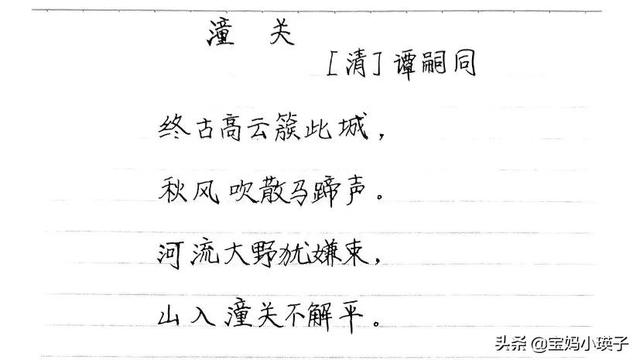 潼 关
[清]谭嗣同
终古高云簇此城，
秋风吹散马蹄声。
河流大野犹嫌束，
山入潼关不解平。
头条 @宝妈小瑛子